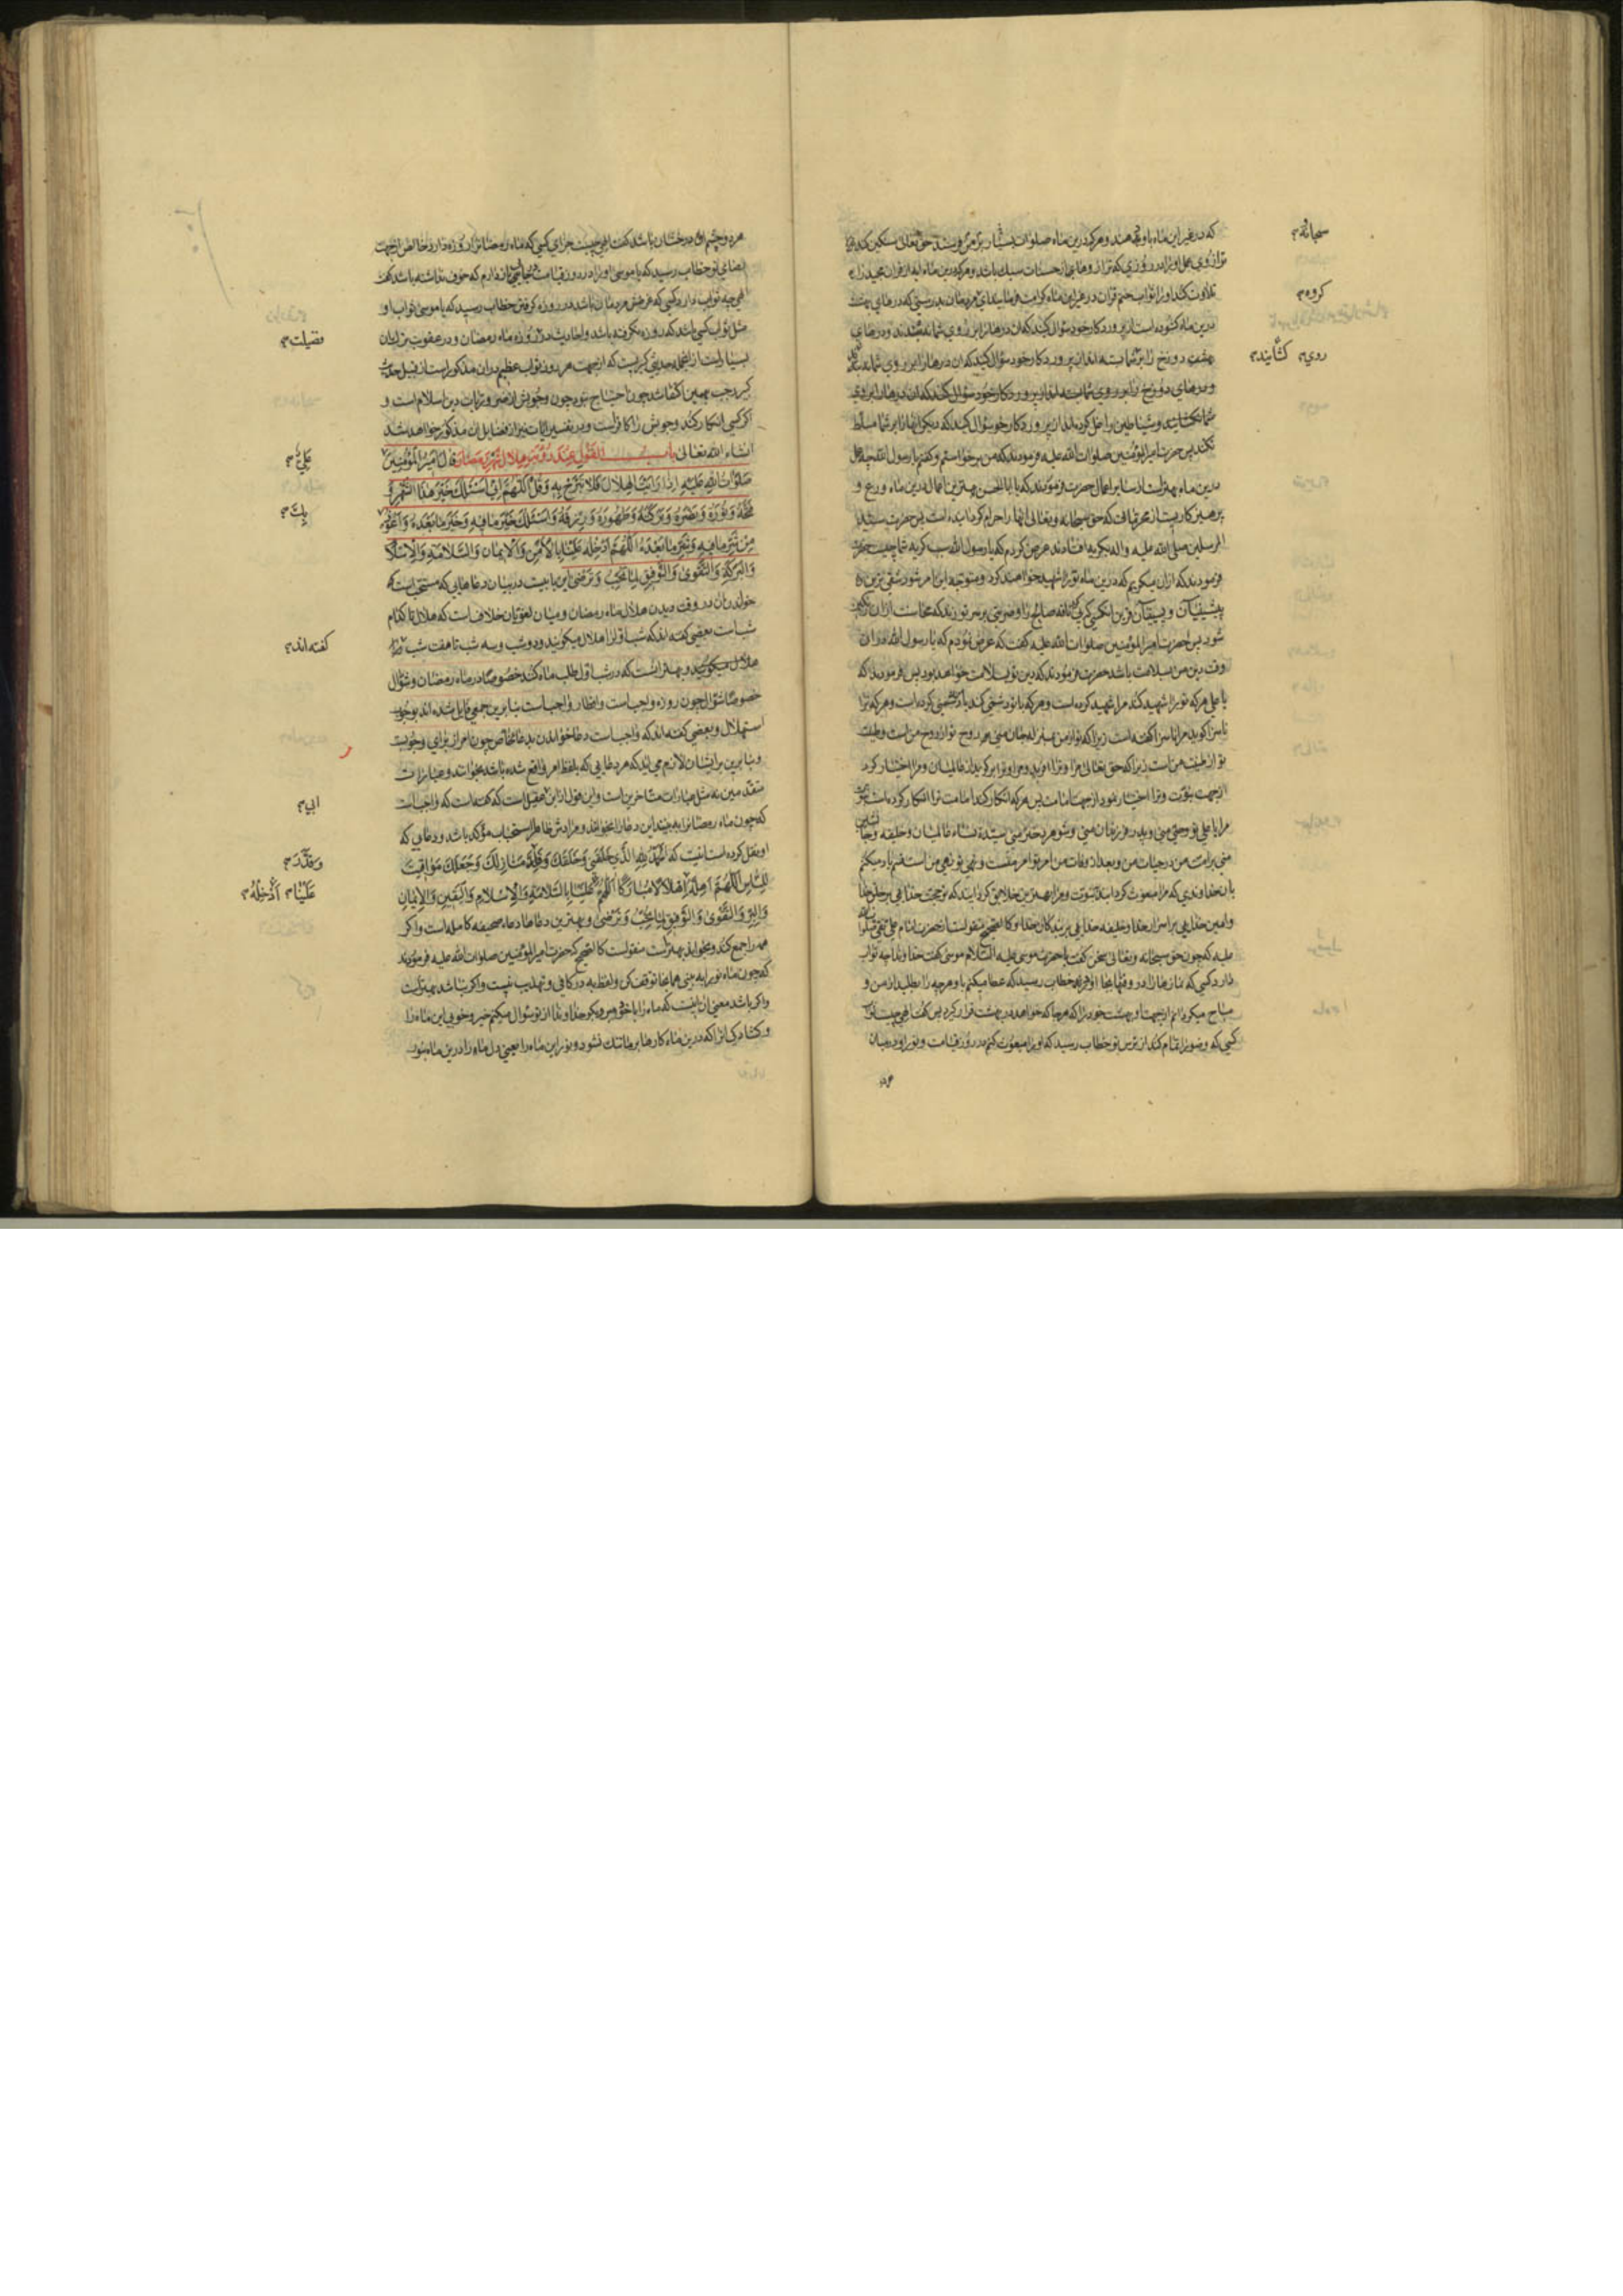 که در غیر این ماه باو دهند و هر که درین ماه صلوات بسیار بر من فرستد حق تعالی سنکین کند
ترازوی عمل او را در روزی که ترازوهای از حسنات سبک باشد و هر که درین ماه ایه از قران مجید را
تلاوت کند او را ثواب ختم قران در غیر این ماه کرامت فرمایند ای مردمان بدرستی که درهای بهشت
درین ماه کشوده است از پروردکار خود سؤال کنید که ان درها را بر روی شما نبندند و درهای
و درهای دوزخ را بر روی شما بسته اند از پروردکار خود سؤال کنید که ان درها را بر روی
شما نکشایند و شیاطین را غل کرده اند از پروردکار خود سؤال کنید که دیکر انها را بر شما مسلط
نکند پس حضرت امیر المؤمنین صلوات الله علیه فرمودند که من برخواستم و کفتم یا رسول الله چه عمل
درین ماه بهتر است از سایر اعمال حضرت فرمودند که یا ابا الحسن بهترین اعمال درین ماه ورع و
پرهیزکاریست از محرماتی که حق سبحانه و تعالی انها را حرام کردانیده است پس حضرت سید
المرسلین صلی الله علیه و اله بکریه افتادند عرض کردم که یا رسول الله سبب کریه شما چیست حضرت
فرمودند که ازان میکریم که درین ماه ترا شهید خواهند کرد و متوجه این امر شود شقی ترین
پیشینیان و پسینیان قرین انکسی که پی ناقه صالح را و ضربتی بر سر تو زند که محاسنت ازان رنکین
شود پس حضرت امیر المؤمنین صلوات الله علیه کفت که عرض نمودم که یا رسول الله دران
وقت دین من سلامت باشد حضرت فرمودند که دین تو بسلامت خواهد بود پس فرمودند که
یا علی هر که ترا شهید کند مرا شهید کرده است و هر که با تو دشمنی کند با من دشمنی کرده است و هر که ترا
ناسزا کوید مرا ناسزا کفته است زیرا که تو از من بمنزله جان منی و روح تو از روح من است و طینت
تو از طینت من است زیرا که حق تعالی مرا و ترا افرید و مرا و ترا برکزید از عالمیان و مرا اختیار کرد
از جهت نبوت و ترا اختیار نمود از جهت امامت پس هر که انکار کند امامت ترا انکار کرده است نبوت
مرا یا علی تو وصی منی و پدر فرزندان منی و شوهر دختر منی سیدة نساء عالمیان و خلیفه و جانشین
منی بر امت من در حیات من و بعد از وفات من امر تو امر منست و نهی تو نهی من است قسم یاد میکنم
بان خداوندی که مرا مبعوث کردانید بنبوت و مرا بهترین خلایق کردانید که تو حجت خدایی بر خلق خدا
و امین خدایی بر اسرار خدا و خلیفه خدایی بر بندکان خدا و کالصحیح منقولست از حضرت امام علی نقی صلوات الله
علیه که چون حق سبحانه و تعالی سخن کفت با حضرت موسی علیه السلام موسی کفت خداوندا چه ثواب
دارد کسی که نمازها را در وقتها بجا اورد خطاب رسید که عطا میکنم باو هر چه را بطلبد از من و
مباح میکردانم از جهت او بهشت خود را که هر جا که خواهد در بهشت قرار کیرد پس کفت الهی چیست ثواب
کسی که وضو را تمام کند از ترس تو خطاب رسید که او را مبعوث کنم در روز قیامت و نور او در میان
سبحانه م
کروه م
روی م کشایند م
هر دو چشم او درخشان باشد کفت الهی چیست جزای کسی که ماه رمضان را روزه دارد خالص از جهت
رضای تو خطاب رسید که یا موسی او را در روز قیامت در جایی باز دارم که خوف نداشته باشد کفت
الهی چه ثواب دارد کسی که غرضش مردمان باشد در روزه کرفتن خطاب رسید که یا موسی ثواب او
مثل ثواب کسی باشد که روزه نکرفته باشد و احادیث در روزه ماه رمضان و در عقوبت ترک ان
بسیار است از انجمله حدیثی کبیر است که از جهت هر روز ثواب عظیم دران مذکور است از قبیل حدیث
کبیر رجب بهمین اکتفا شد چون احتیاج نبود چون وجوبش از ضروریات دین اسلام است و
اکر کسی انکار کند وجوبش را کافر است و در تفسیر ایات نیز از فضایل ان مذکور خواهد شد
انشاء الله تعالی باب القول عند رؤیة هلال شهر رمضان قال امیر المؤمنین
صلوات الله علیه اذا رأیت الهلال فلا تبرح به و قل اللهم انی اسئلک خیر هذا الشهر و
فتحه و نوره و نصره و برکته و طهوره و رزقه و اسئلک خیر ما فیه و خیر ما بعده و اعوذ
من شر ما فیه و شر ما بعده اللهم ادخله علینا بالامن و الایمان و السلامة و الاسلام
و البرکة و التقوی و التوفیق لما تحب و ترضی این بابیست در بیان دعاهایی که مستحب است
خواندن ان در وقت دیدن هلال ماه رمضان و میان لغویان خلاف است که هلال تا کدام
شب است بعضی کفته اند که شب اول را هلال میکویند و دو شب و سه شب تا هفت شب
هلال میکویند و بهتر انست که در شب اول طلب ماه کنند خصوصا در ماه رمضان و شوال
خصوصا شوال چون روزه واجب است و افطار واجب است بنابرین جمعی قایل شده اند بوجوب
استهلال و بعضی کفته اند که واجب است دعا خواندن بدعا خاص چون امر از برای وجوبست
و بنابرین برایشان لازم می اید که هر دعایی که بلفظ امر واقع شده باشد بخوانند و عبارات
متقدمین به مثل عبارات متاخرین است و این قول از ابن عقیل است که کفته است که واجب است
که چون ماه رمضان را ببینید این دعا را بخوانند و مرادش ظاهرا استحباب مؤکد باشد و دعایی که
او نقل کرده است اینست که الحمد لله الذی خلقنی و خلقک و قدر منازلک و جعلک مواقیت
للناس اللهم اهله اهلالا مبارکا اللهم علینا بالسلامة و الاسلام و الیقین و الایمان
و البر و التقوی و التوفیق لما تحب و ترضی و بهترین دعاها دعاء صحیفه کامله است و اکر
همه را جمع کند و بخواند بهتر است منقولست کالصحیح که حضرت امیر المؤمنین صلوات الله علیه فرمودند
که چون ماه نو را به بینی همانجا توقف کن و لفظ به در کافی و تهذیب نیست و اکر نباشد بهتر است
و اکر باشد معنی ان اینست که ماه را با خود مبر و بکو خداوندا از تو سؤال میکنم خیر و خوبی این ماه را
و کشادکی انرا که درین ماه کارها بر ما تنک نشود و نور این ماه را یعنی دل ماه را درین ماه بنور
فضیلت م
علی م
بک م
کفته اند م
ابی م
و قدر م
علینا م ادخله م